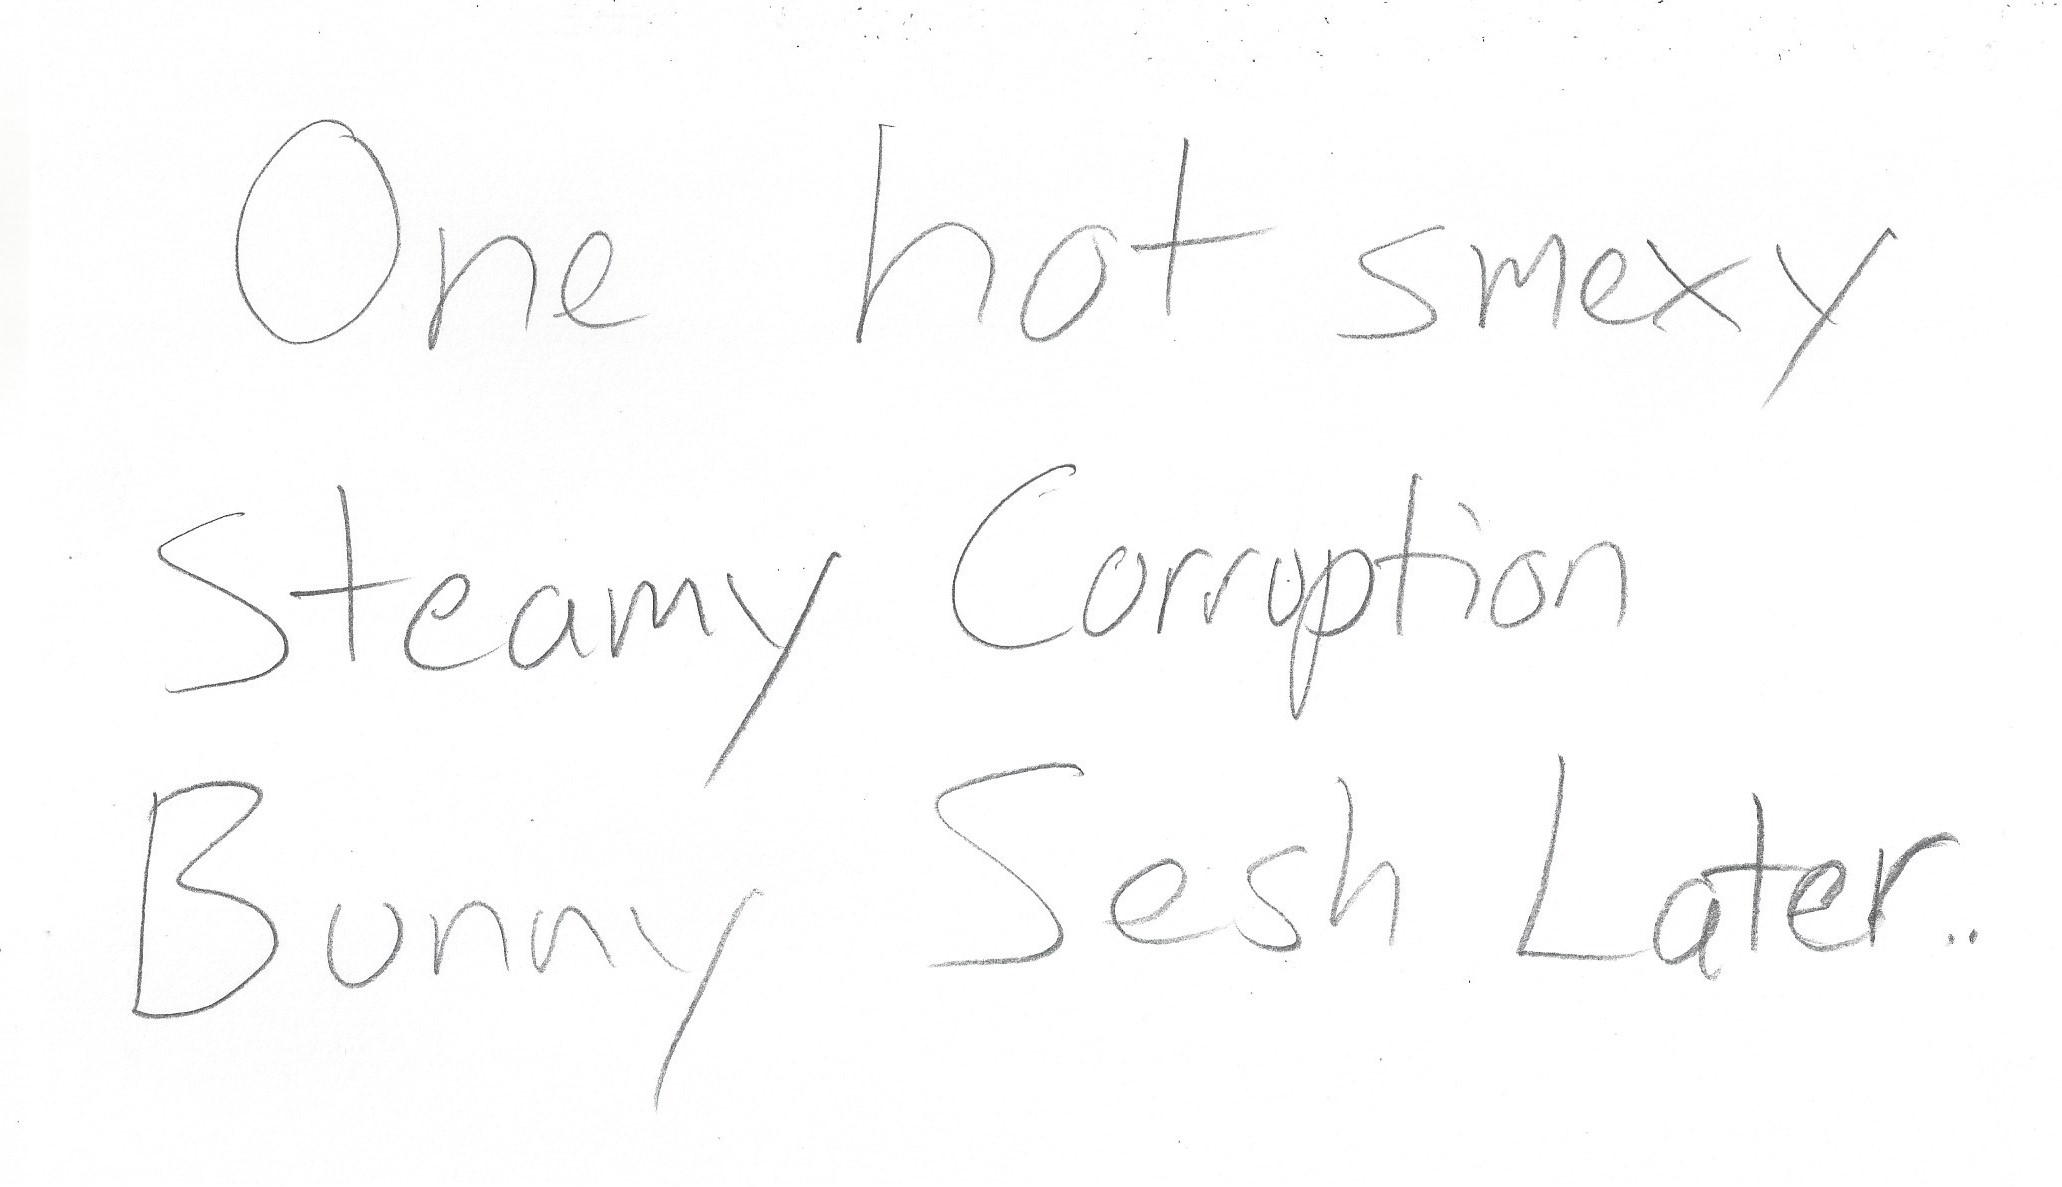 One hot smexy
Steamy Corruption
Bunny Sesh Later..